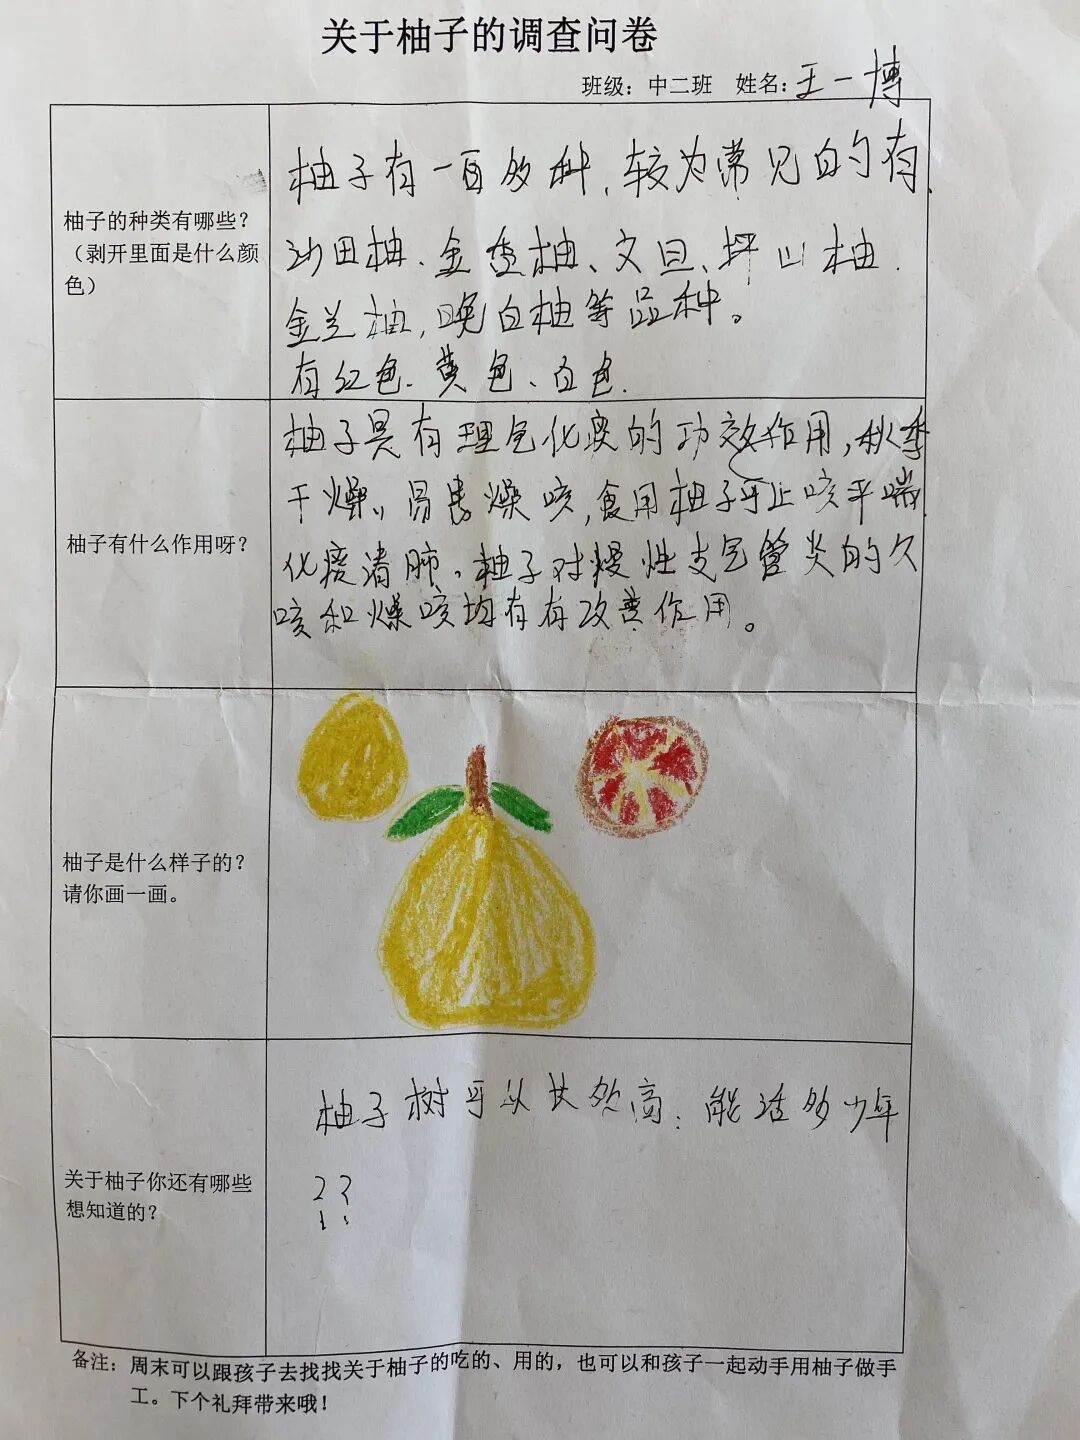 关于柚子的调查问卷
班级：中二班 姓名：王一博
柚子的种类有哪些？
（剥开里面是什么颜
色）
柚子有一百多种，较为常见的有
沙田柚、金香柚、文旦、坪山柚、
金兰柚，晚白柚等品种。
有红色、黄色、白色.
柚子有什么作用呀？
柚子具有理气化痰的功效作用，秋季
干燥，易患燥咳，食用柚子可止咳平喘
化痰清肺。柚子对慢性支气管炎的久
咳和燥咳均有有改善作用。
柚子是什么样子的？
请你画一画。
关于柚子你还有哪些
想知道的？
柚子树可以长多高；能活多少年
？？
备注：周末可以跟孩子去找找关于柚子的吃的、用的，也可以和孩子一起动手用柚子做手
工。下个礼拜带来哦！